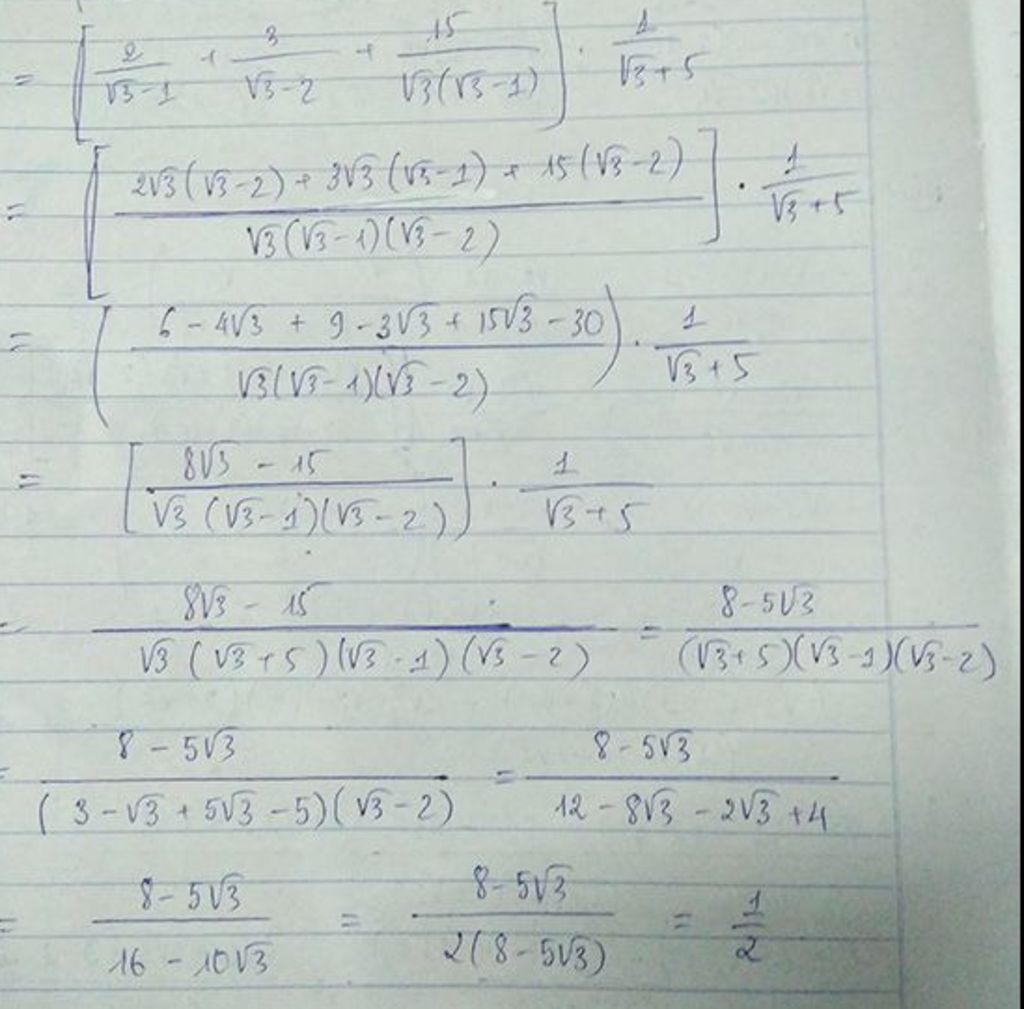 = [ 2/(√3-1) + 3/(√3-2) + 15/(√3(√3-1)) ] · 1/(√3+5)
= [ (2√3(√3-2) + 3√3(√3-1) + 15(√3-2)) / (√3(√3-1)(√3-2)) ] · 1/(√3+5)
= ( (6 - 4√3 + 9 - 3√3 + 15√3 - 30) / (√3(√3-1)(√3-2)) ) · 1/(√3+5)
= [ (8√3 - 15) / (√3(√3-1)(√3-2)) ] · 1/(√3+5)
= (8√3 - 15) / (√3(√3+5)(√3-1)(√3-2)) = (8-5√3) / ((√3+5)(√3-1)(√3-2))
= (8 - 5√3) / ((3-√3+5√3-5)(√3-2)) = (8-5√3) / (12 - 8√3 - 2√3 + 4)
= (8-5√3) / (16 - 10√3) = (8-5√3) / (2(8-5√3)) = 1/2